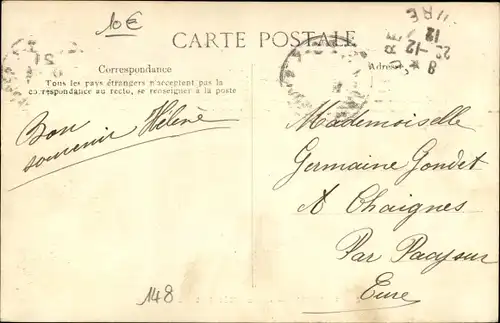 10€
CARTE POSTALE
Correspondance
Tous les pays étrangers n'acceptent pas la
correspondance au recto, se renseigner à la poste
Adresse
8
22-12
12
URE
Bon
souvenir Hélène
Mademoiselle
Germaine Gondet
A Chaignes
Par Pacy sur
Eure
148